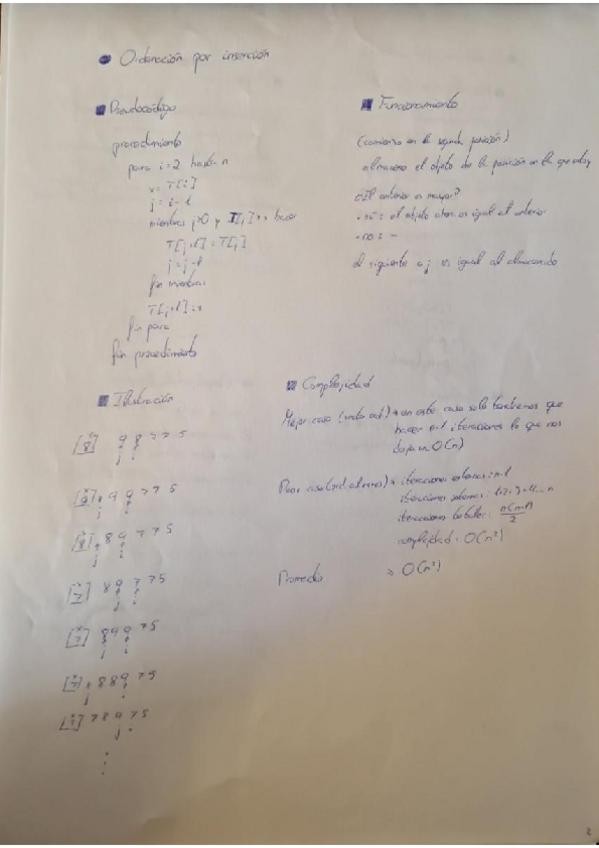 Ordenación por inserción
Pseudocódigo
procedimiento
para i=2 hasta n
x=T[i]
j=i-1
mientras j>0 y T[j]>x hacer
T[j+1]=T[j]
j=j-1
fin mientras
T[j+1]=x
fin para
fin procedimiento
Funcionamiento
(comienza en la segunda posición)
almaceno el objeto de la posición en la que estoy
¿El anterior es mayor?
-sí: el objeto ahora es igual al anterior
-no: -
el siguiente a j es igual al almacenado
Ilustración
[8] 9 8 7 7 5
j i
9 9 7 7 5
j i
[8] 8 9 7 7 5
j i
[7] 8 9 7 7 5
j i
[7] 8 9 9 7 5
j i
[7] 8 8 9 7 5
j i
[7] 7 8 9 7 5
j i
Complejidad
Mejor caso (vector ord) en este caso solo tendremos que
hacer n-1 iteraciones lo que nos
deja un O(n)
Peor caso (ord. inverso) iteraciones externas: n-1
iteraciones internas: 1+2+3+4...n
iteraciones totales: n(n-1)
2
complejidad: O(n²)
Promedio O(n²)
2